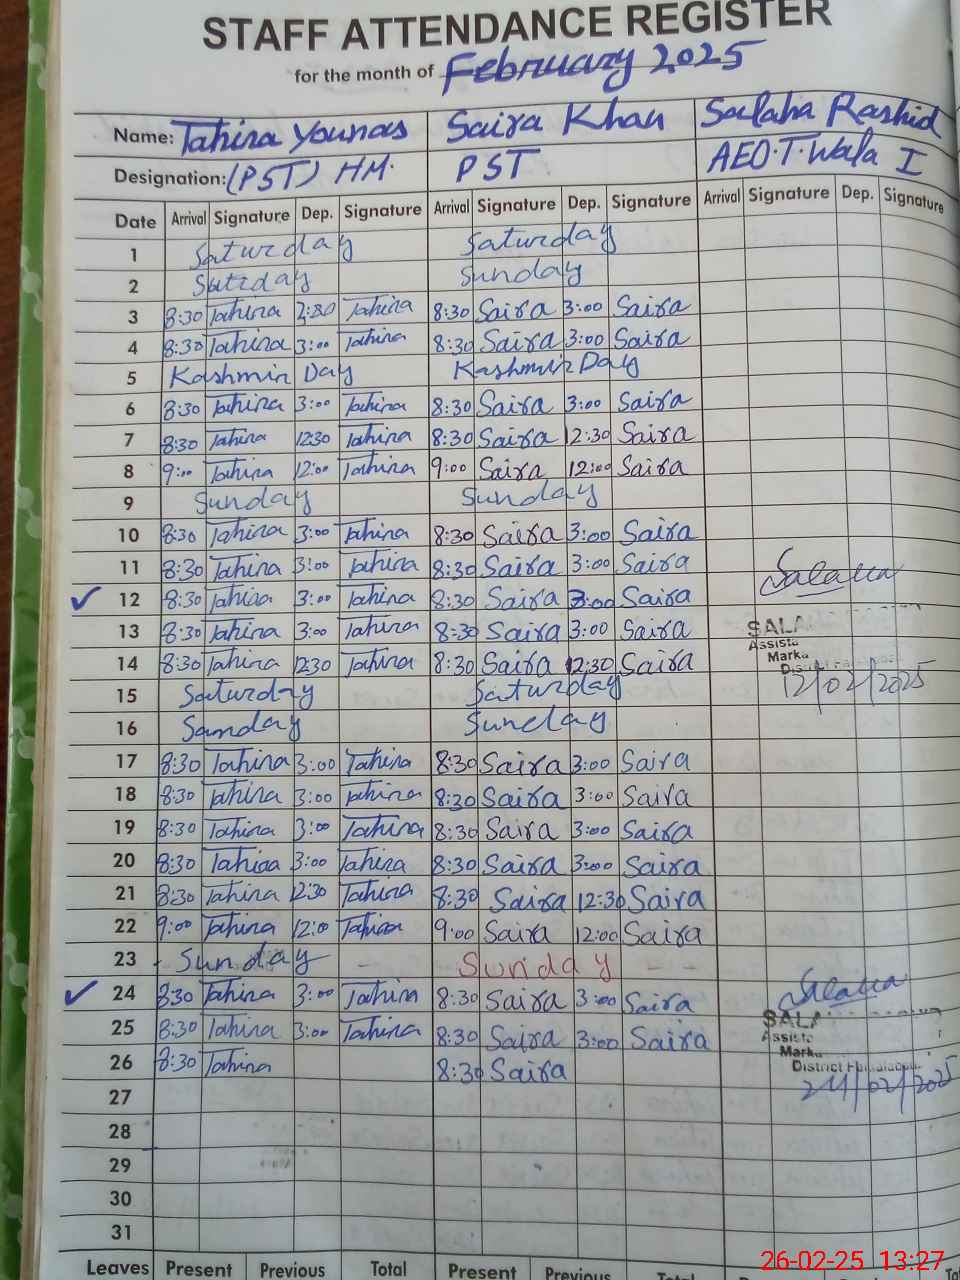 STAFF ATTENDANCE REGISTER
for the month of February 2025
Name: Tahira Younas Saira Khan Salaha Rashid
Designation: (PST) HM. PST AEO.T.Wala I
Date Arrival Signature Dep. Signature Arrival Signature Dep. Signature Arrival Signature Dep. Signature
1 Saturday Saturday
2 Sunday
3 8:30 Tahira Tahira 8:30 Saira 3:00 Saira
4 8:30 Tahira 3:00 Tahira 8:30 Saira 3:00 Saira
5 Kashmir Day Kashmir Day
6 8:30 Tahira 3:00 Tahira 8:30 Saira 3:00 Saira
7 8:30 Tahira 12:30 Tahira 8:30 Saira 12:30 Saira
8 9:00 Tahira 12:00 Tahira 9:00 Saira 12:00 Saira
9 Sunday Sunday
10 8:30 Tahira 3:00 Tahira 8:30 Saira 3:00 Saira
11 8:30 Tahira 3:00 Tahira 8:30 Saira 3:00 Saira
12 8:30 Tahira 3:00 Tahira 8:30 Saira 3:00 Saira
13 8:30 Tahira 3:00 Tahira 8:30 Saira 3:00 Saira SALA
Assista
Marka
14 8:30 Tahira 12:30 Tahira 8:30 Saira 12:30 Saira
District
12/02/2025
15 Saturday Saturday
16 Sunday
17 8:30 Tahira 3:00 Tahira 8:30 Saira 3:00 Saira
18 8:30 Tahira 3:00 Tahira 8:30 Saira 3:00 Saira
19 8:30 Tahira 3:00 Tahira 8:30 Saira 3:00 Saira
20 8:30 Tahira 3:00 Tahira 8:30 Saira 3:00 Saira
21 8:30 Tahira 12:30 Tahira 8:30 Saira 12:30 Saira
22 9:00 Tahira 12:00 Tahira 9:00 Saira 12:00 Saira
23 Sunday Sunday
24 8:30 Tahira 3:00 Tahira 8:30 Saira 3:00 Saira
SALA
25 8:30 Tahira 3:00 Tahira 8:30 Saira 3:00 Saira Assista
Marka
26 8:30 Tahira 8:30 Saira District
24/02/2025
27
28
29
30
31
Leaves Present Previous Total Present Previous Total
26-02-25 13:27